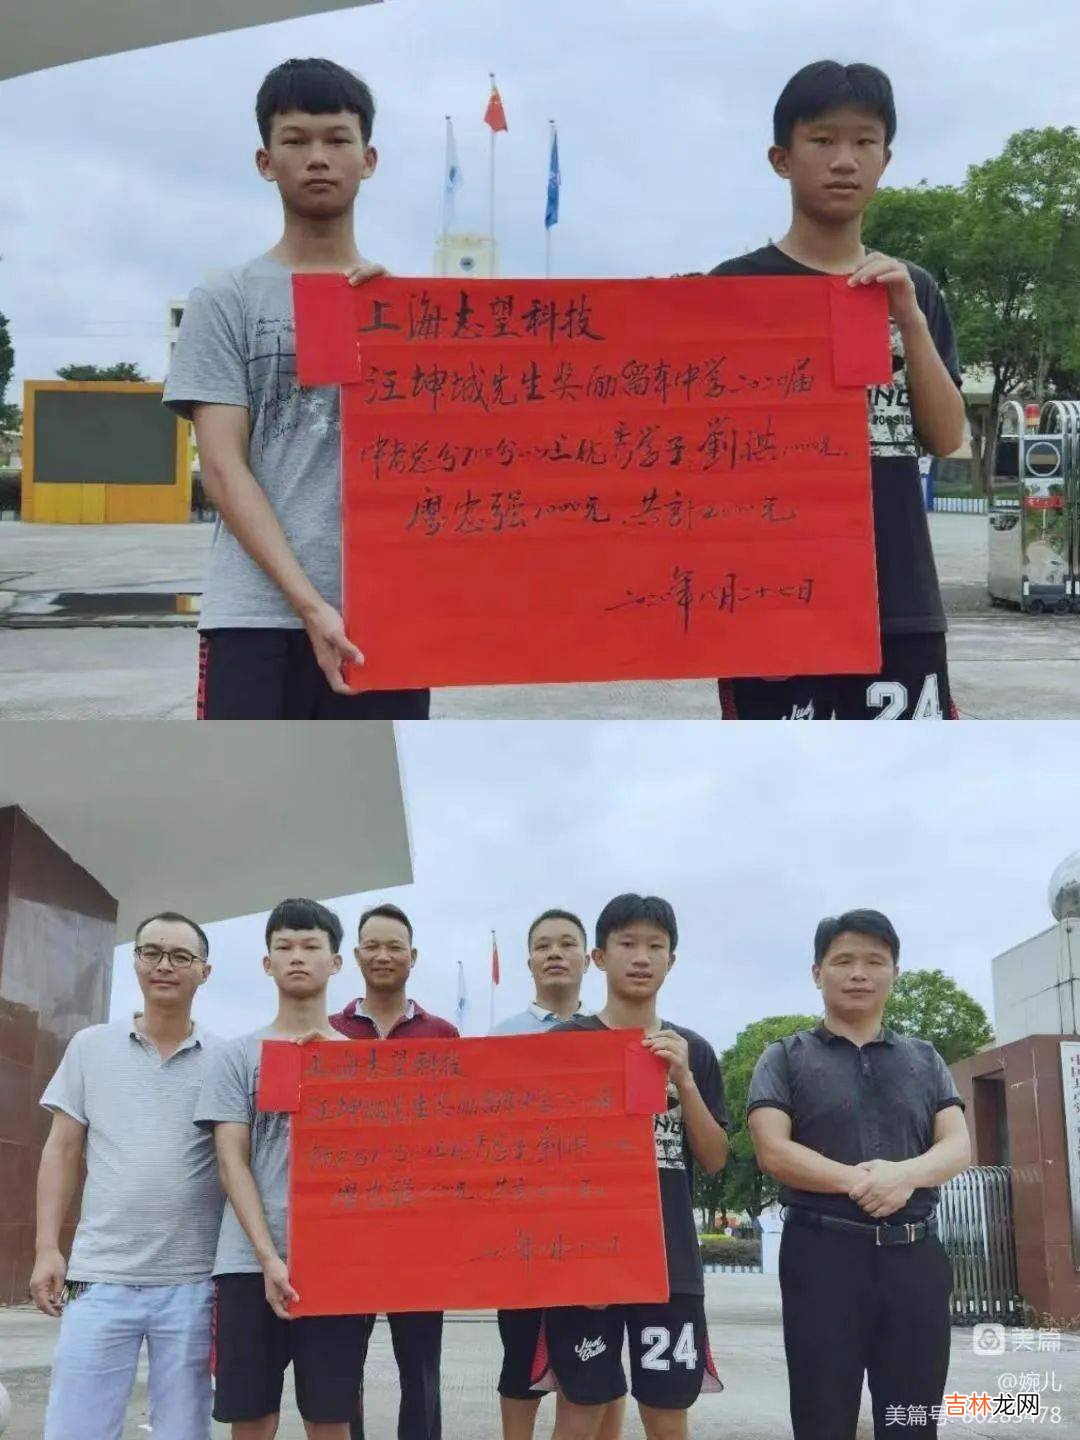 上海志望科技
汪坤城先生奖励留车中学二〇二〇届
中考总分700分以上优秀学子刘淇1000元,
廖忠强1000元,共计2000元
二〇二〇年八月二十七日
24
上海志望科技
汪坤城先生奖励留车中学二〇二〇届
廖忠强1000元,共计2000元
二〇二〇年八月二十七日
Just
24
美篇
@婉儿
美篇号:80283478
吉林龙网